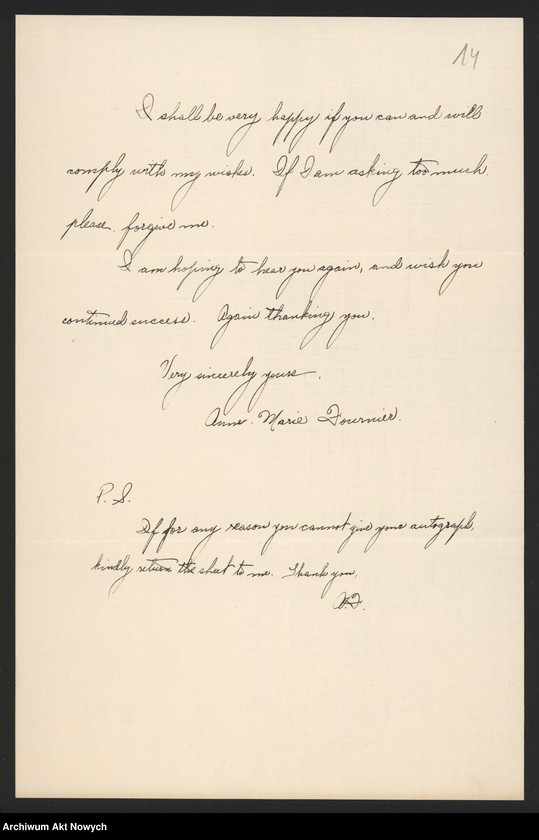 14
I shall be very happy if you can and will
comply with my wishes. If I am asking too much,
please, forgive me.
I am hoping to hear you again, and wish you
continued success. Again thanking you,
Very sincerely yours,
Anne-Marie Fournier.
P. S.
If for any reason you cannot give your autograph,
kindly return the sheet to me. Thank you,
A.F.
Archiwum Akt Nowych